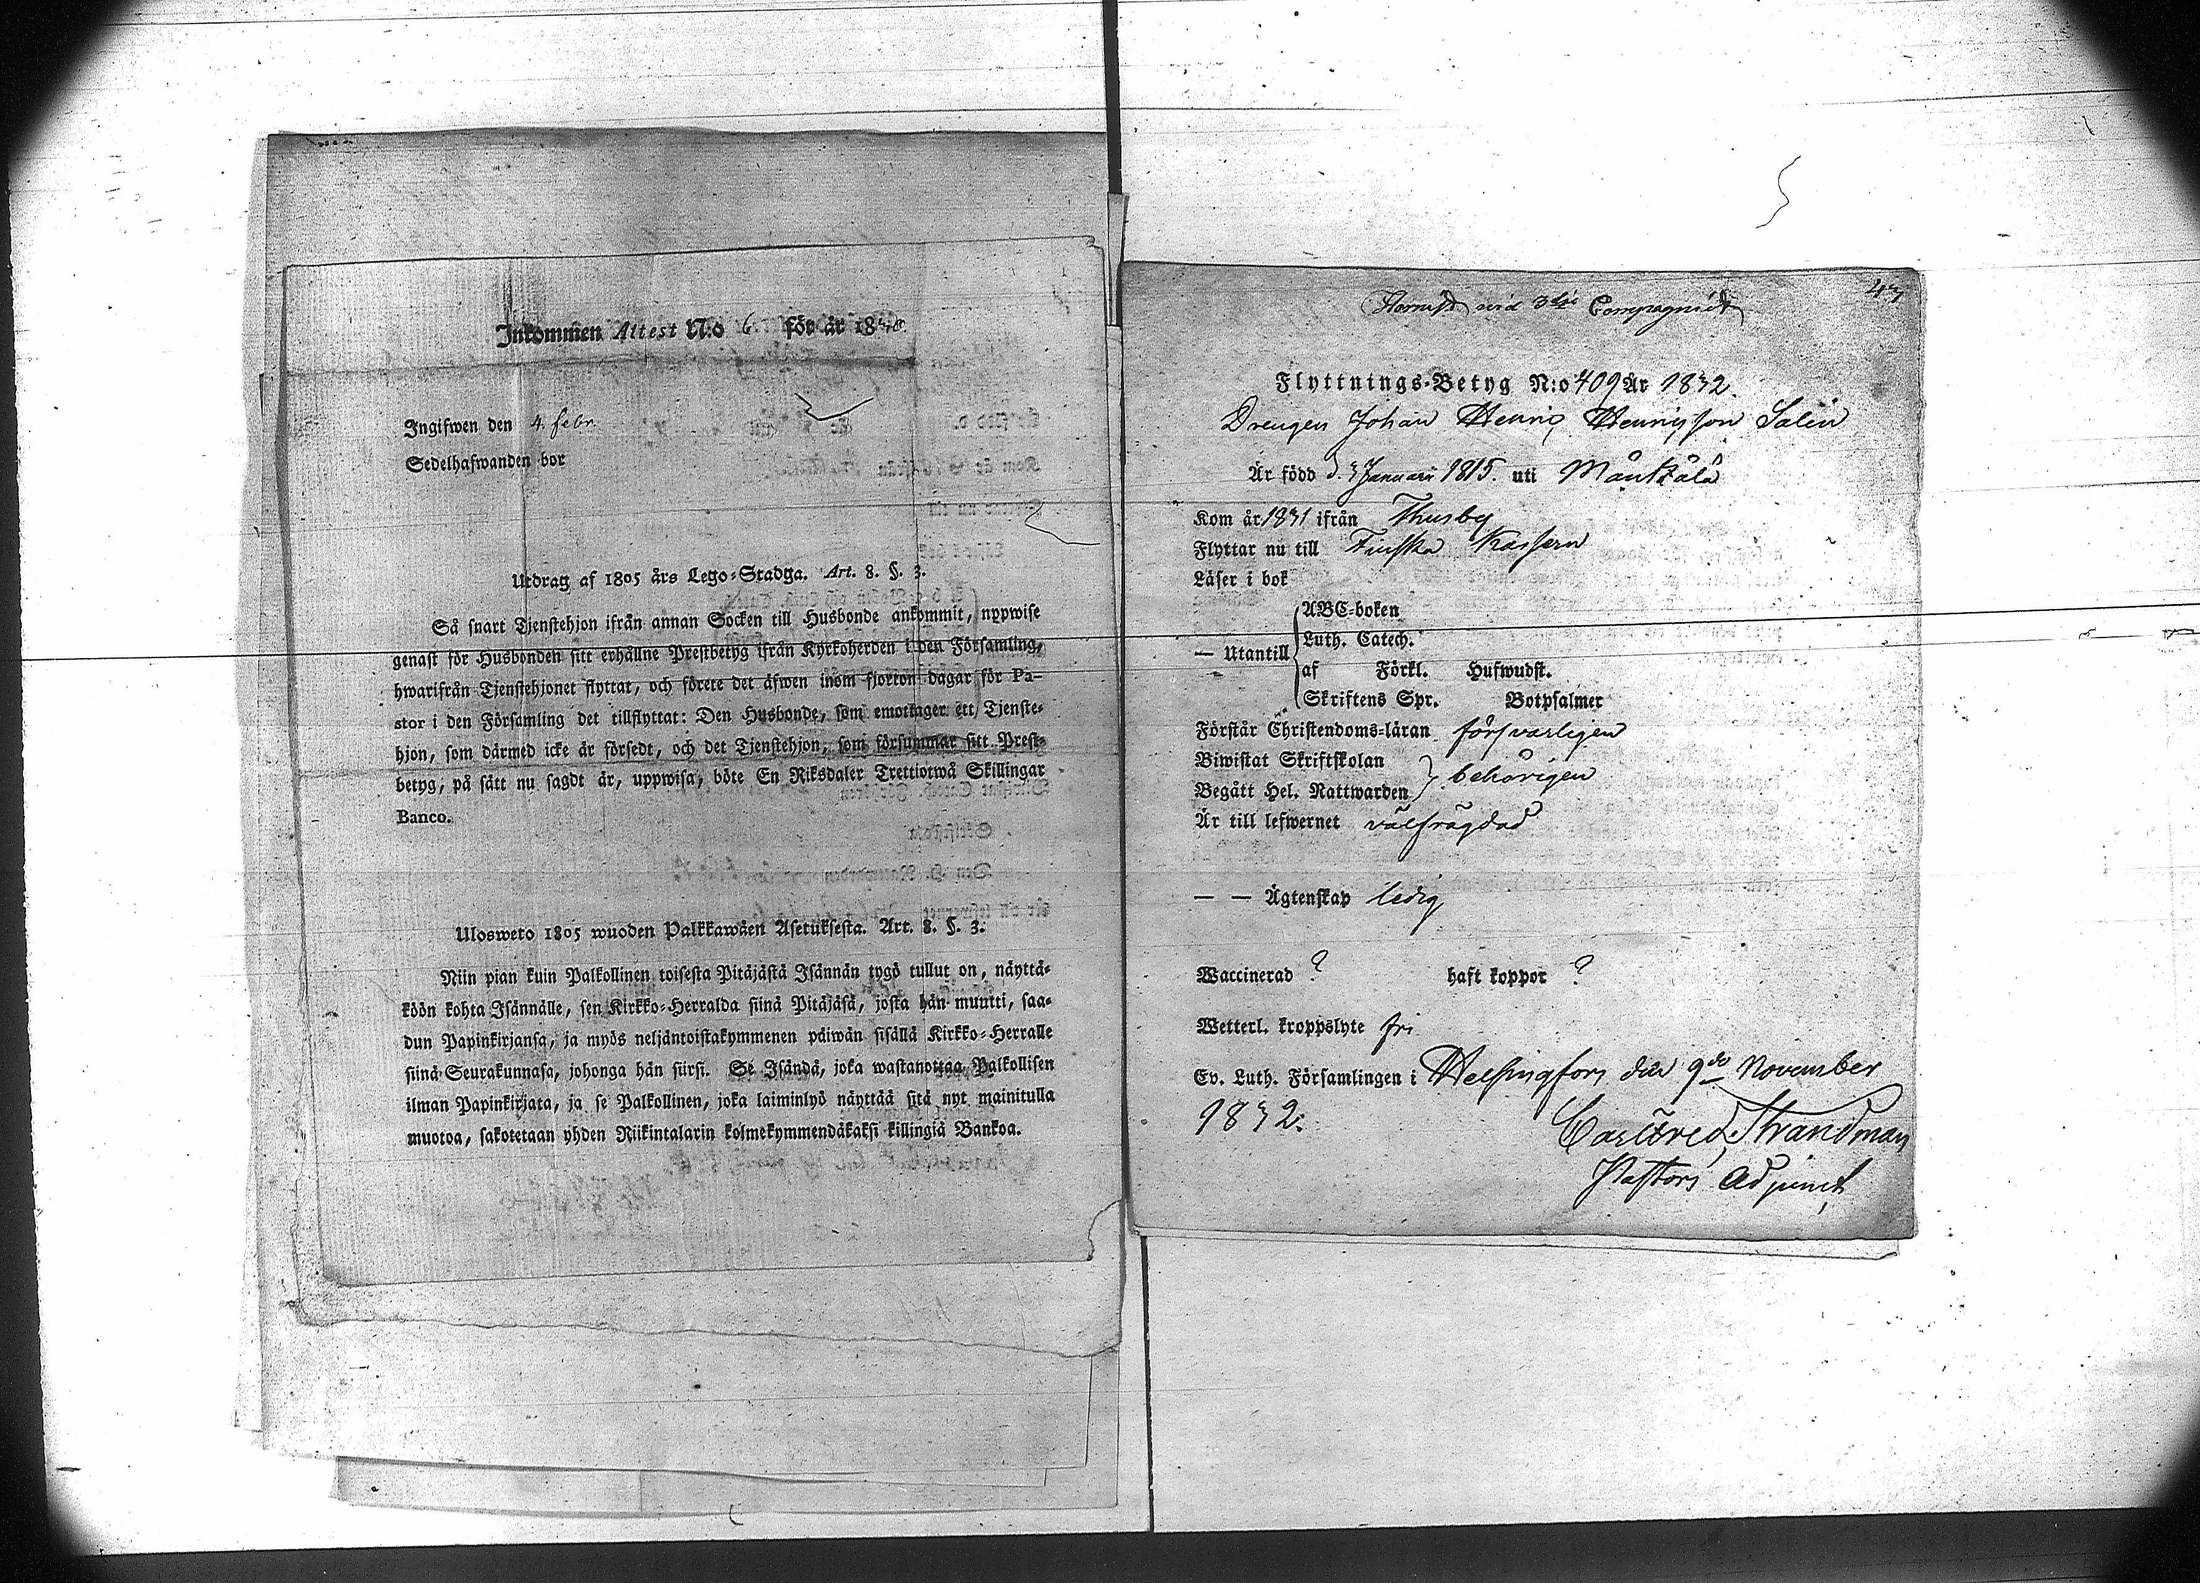 Inkommen Attest N:o 6 för år 1840
Ingifwen den 4. febr.
Sedelhafwanden bor
Utdrag af 1805 års Lego-Stadga. Art. 8. §. 3.
Så snart Tjenstehjon ifrån annan Socken till Husbonde ankommit, uppwise
genast för Husbonden sitt erhållne Prestbetyg ifrån Kyrkoherden i den Församling,
hwarifrån Tjenstehjonet flyttat, och förete det äfwen inom fjorton dagar för Pa-
stor i den Församling det tillflyttat: Den Husbonde, som emottager ett Tjenste-
hjon, som därmed icke är försedt, och det Tjenstehjon, som försummar sitt Prest-
betyg, på sätt nu sagdt är, uppwisa, böte En Riksdaler Trettiotwå Skillingar
Banco.
Ulosweto 1805 wuoden Palkkawäen Asetuksesta. Art. 8. §. 3.
Niin pian kuin Palkollinen toisesta Pitäjästä Isännän tygö tullut on, näyttä-
köön kohta Isännälle, sen Kirkko-Herralda siinä Pitäjäsä, josta hän muutti, saa-
dun Papinkirjansa, ja myös neljäntoistakymmenen päiwän sisällä Kirkko-Herralle
siinä Seurakunnasa, johonga hän siirsi. Se Isändä, joka wastanottaa Palkollisen
ilman Papinkirjata, ja se Palkollinen, joka laiminlyö näyttää sitä nyt mainitulla
muotoa, sakotetaan yhden Riikintalarin kolmekymmendäkaksi killingiä Bankoa.
47
vid 3die Compagniet
Flyttnings-Betyg N:o 409 År 1832.
Drengen Johan Henric Henricsson Salén
Är född d. 3 Januarii 1815. uti Mäntzälä
Kom år 1831 ifrån Thusby
Flyttar nu till Finska Kassern
Läser i bok
— Utantill
ABC-boken
Luth. Catech.
af Förkl. Hufwudst.
Skriftens Spr. Botpsalmer
Förstår Christendoms-läran försvarligen
Biwistat Skriftskolan
behörigen
Begått Hel. Nattwarden
Är till lefwernet välfrägdad
— — Ägtenskap ledig
Waccinerad ? haft koppor ?
Wetterl. kroppslyte fri
Ev. Luth. Församlingen i Helsingfors den 9de November
1832.
Carl Fred. Strandman
Pastors Adjunct